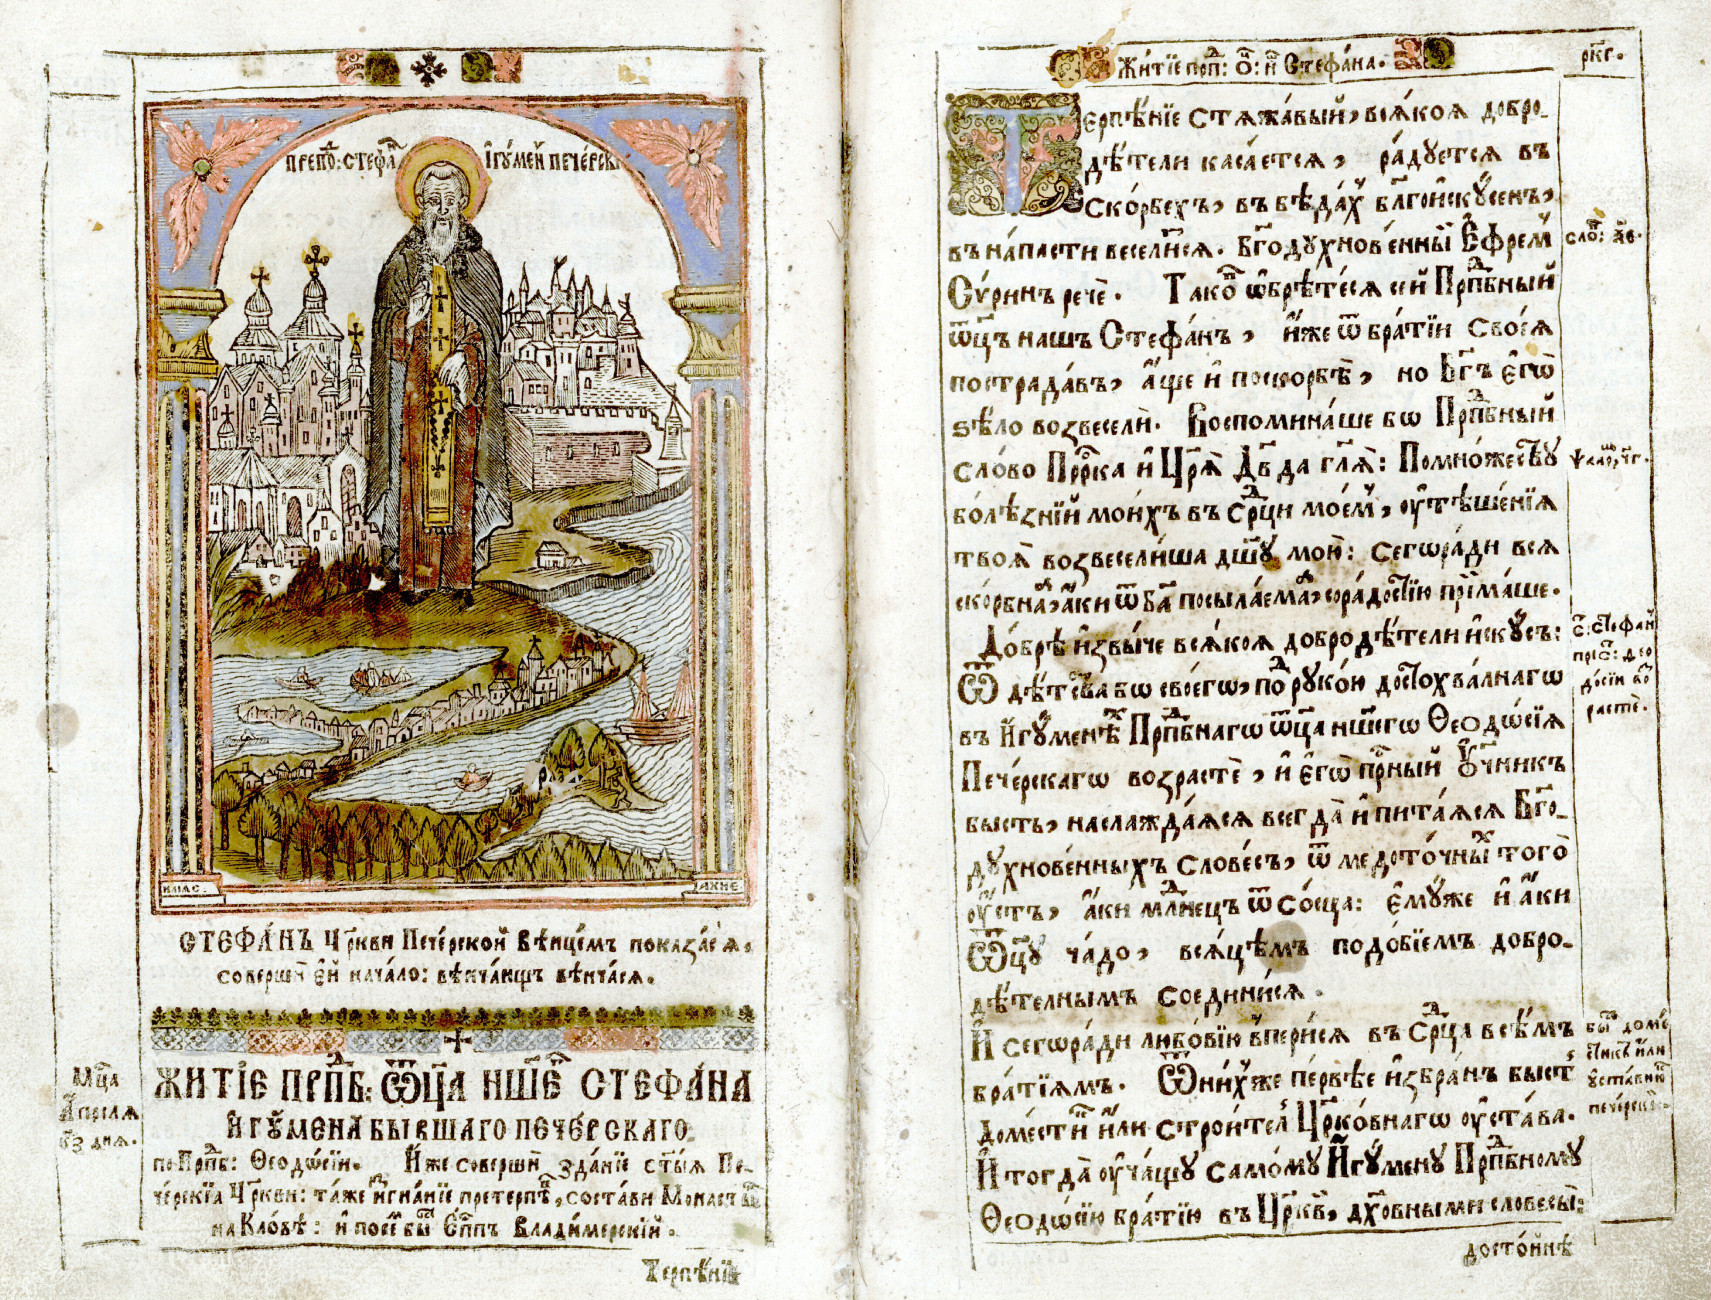 ПРЕПОⷣ: СТЕФАⷩ҇ ІГꙊМЕⷩ҇ ПЕЧЕ́РСКІ
ИЛІАС.
АХН҃Е
СТЕФА́НЪ Цр҃кви Пече́рской Вѣнце́мъ показа́сѧ,
соверши́ в ей нача́ло: вѣнча́ющъ вѣнча́сѧ.
Мцⷭ҇а
А҆пріѧлѧ
к҃з днѧ.
ЖИТІЕ ПРПⷣБ: Ѿц҃а НШ҃ЕГⷪ҇ СТЕФА́НА
И҆ГꙊ́МЕНА БЫВШАГО ПЕЧЕ́РСКАГО.
по Прпⷣб: Ѳеодѡ́сіи. И҆́же соверши́ въ зда́ніе ст҃ы́ѧ Пе-
че́рскіѧ Цр҃кви: та́же и҆згна́ніе претерпѣ́въ, соста́ви Монасты́ръ
на Кло́вѣ: и҆ посеⷨ҇ быⷭ҇ Е҆пⷭ҇пъ Владимерскій.
Терпѣ́ніе
Житіе прпⷣ: Ѻ҃: н҃ Стефа́на.
рк҃г.
Терпѣ́ніе стѧжа́вый, всѧ́коѧ добро-
дѣ́тели каса́етсѧ, ра́дуетсѧ въ
Ско́рбехъ, въ бѣда́хъ бл҃гои҆ску́сенъ,
въ на́пасти весели́сѧ. Бг҃одухнове́нный Е҆фре́мъ
Сѵ́ринъ речѐ. Тако́въ ѡ҆брѣ́тесѧ сей Прпⷣбный
ѿц҃ъ нашъ Стефа́нъ, и҆́же ѿ бра́тіи своеѧ̀
пострада́въ, а҆́ще и҆ поскорбѣ̀, но Бг҃ъ е҆гѡ̀
ѕѣ́ло возвеселѝ. Воспомина́ше бѡ Прпⷣбный
сло́во Прⷪ҇рка и҆ Цр҃ѧ̀ Дв҃да гл҃ѧ: По мно́жеству
болѣ́зній мои́хъ въ Срⷣци мое́мъ, ѹ҆тѣше́нїѧ
твоѧ̀ возвесели́ша дш҃у мою̀: сегѡ̀ра́ди всѧ
ско́рбнаѧ, а҆́ки ѿ Бг҃а посыла́емаѧ, со ра́достїю пріима́ше.
До́брѣ и҆звы́че всѧ́коѧ доброде́тели и҆ску́съ:
Ѿ дѣ́тства бѡ своегѡ̀, под руко́ю достохва́лнагѡ
въ И҆гꙋ́менѣхъ Прпⷣбнагѡ ѿц҃а нш҃егѡ Ѳеодѡ́сїѧ
Пече́рскагѡ возрастѐ, и҆ е҆гѡ̀ пр҃ный ѹ҆чн҃икъ
бысть, наслажда́ѧсѧ всегда̀ и҆ пита́ѧсѧ Бг҃о-
духнове́нныхъ слове́съ, ѿ медото́чныхъ того̀
ѹ҆́стъ, а҆́ки младе́нецъ ѿ сосца̀: е҆мꙋ́же и҆ а҆́ки
Ѿц҃у ча́до, всѧ́цѣмъ подо́бїемъ добро-
дѣ́телнымъ соедини́сѧ.
И҆ сегѡ̀ра́ди любо́вїю вперисѧ въ Срⷣца всѣ́мъ
бра́тїѧмъ. Ѿ ни́хже пе́рвѣе и҆збра́нъ бысть
Доме́стикъ и҆лѝ строи́тель Цр҃ко́внагѡ ѹ҆ста́ва.
И҆ тогда̀ ѹ҆ча́щу самому И҆гꙋ́мену Прпⷣбному
Ѳеодѡ́сїю бра́тїю въ Цр҃квѣ, дх҃о́вными словесы̀:
досто́йнѣ
Сло́в: л҃е.
Ѱало́м, ч҃г.
С: Стефан
при С: Ѳео-
до́сіи воз-
растѐ.
Быⷭ҇ доме́-
стикъ и҆лѝ
уста́вникъ
пече́рскій.